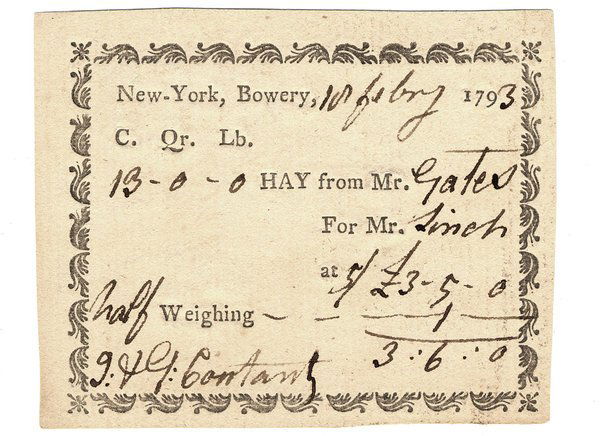 New-York, Bowery, 18 febry 1793
C. Qr. Lb.
13-0-0 HAY from Mr. Gates
For Mr. Linch
at 5/ £3-5-0
half Weighing - - - 1
3:6:0
J: & J: Coutant